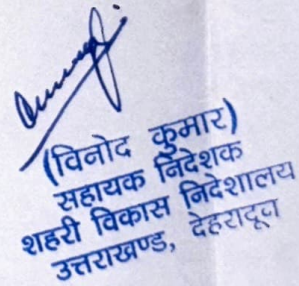 (विनोद कुमार)
सहायक निदेशक
शहरी विकास निदेशालय
उत्तराखण्ड, देहरादून